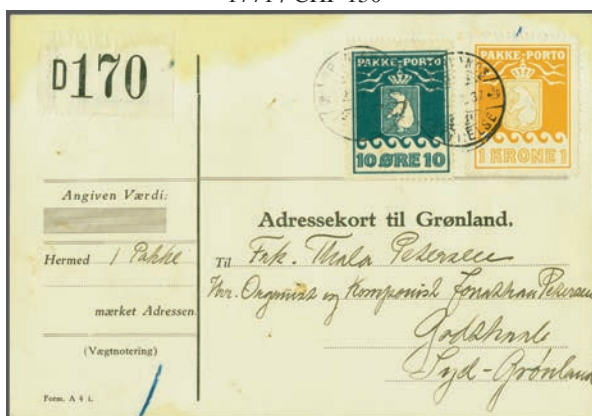 D170
PAKKE-PORTO
10 ØRE 10
PAKKE-PORTO
1 KRONE 1
Angiven Værdi:
Hermed 1 Pakke
mærket Adressen
(Vægtnotering)
Form. A 4 i.
Adressekort til Grønland.
Til Frk. Thala Petersen
Hr. Organist og Komponist Jonathan Petersen
Godthaab
Syd-Grønland